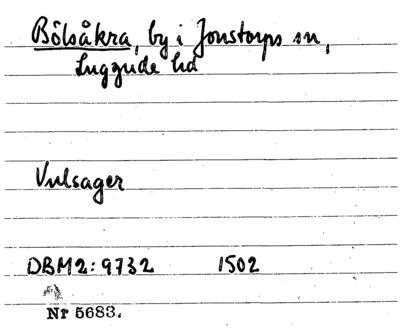 Bölsåkra, by i Jonstorps sn,
Luggude hd
Vulsager
DBM2: 9732 1502
Nr 5683.